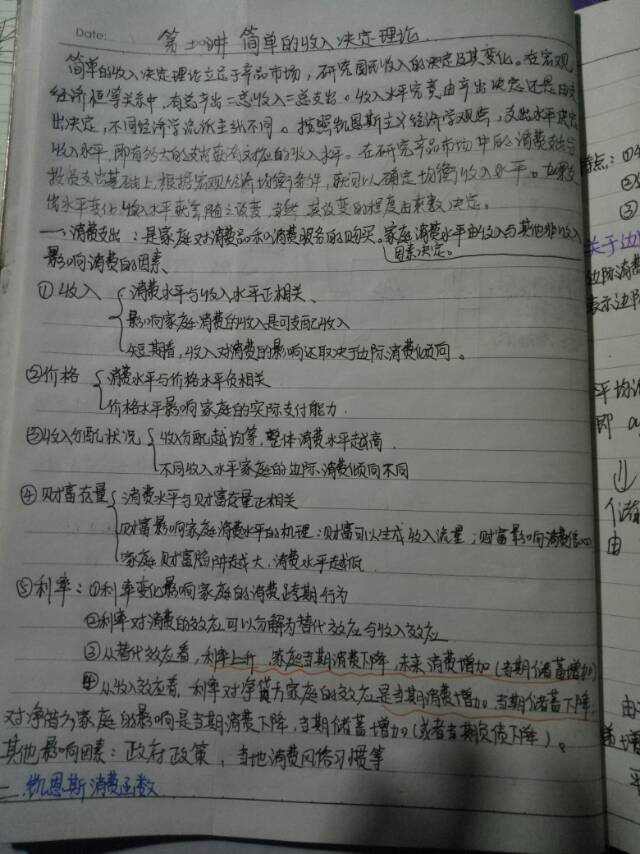 Date:
第二十讲 简单的收入决定理论
简单的收入决定理论立足于产品市场，研究国民收入的决定及其变化。在宏观
经济恒等关系中，有总产出=总收入=总支出。收入水平究竟由产出决定还是由支
出决定，不同经济学流派主张不同。按照凯恩斯主义经济学观点，支出水平决定
收入水平，即有多大的支出就有对应的收入水平。在研究产品市场中的消费支出与
投资支出基础上，根据宏观经济均衡条件，就可以确定均衡收入水平。如果支
出水平变化，收入水平就会随之改变，当然，其改变的程度由乘数决定。
一、消费支出：是家庭对消费品和消费服务的购买。家庭消费水平由收入与其他非收入
因素决定。
影响消费的因素、
①收入 消费水平与收入水平正相关、
影响家庭消费的收入是可支配收入
短期看，收入对消费的影响还取决于边际消费倾向。
②价格 消费水平与价格水平负相关
价格水平影响家庭的实际支付能力.
③收入分配状况 收入分配越均等，整体消费水平越高
不同收入水平家庭的边际消费倾向不同
④财富存量 消费水平与财富存量正相关
财富影响家庭消费水平的机理：财富可以生成收入流量；财富影响消费信心
家庭财富陷阱越大，消费水平越低
⑤利率：①利率变化影响家庭的消费跨期行为
②利率对消费的效应可以分解为替代效应与收入效应
③从替代效应看，利率上升，家庭当期消费下降，未来消费增加（当期储蓄增加）
④从收入效应看，利率对净贷方家庭的效应是当期消费增加，当期储蓄下降，
对净借方家庭的影响是当期消费下降，当期储蓄增加（或者当期负债下降）。
其他影响因素：政府政策，当地消费风俗习惯等
二、凯恩斯消费函数
点：①
②
③
关于边
边际消费
表示边际
平均消
即
个
由
由